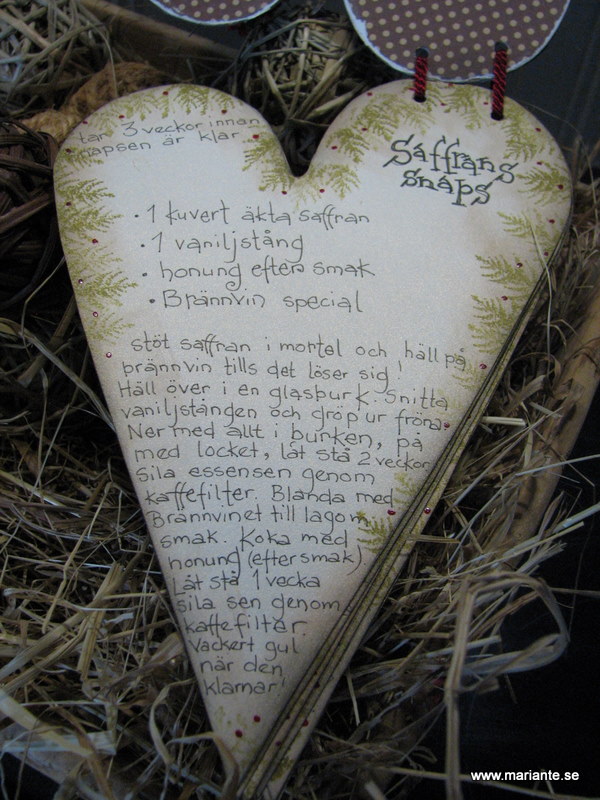 tar 3 veckor innan
snapsen är klar
Saffrans
snaps
· 1 kuvert äkta saffran
· 1 vaniljstång
· honung efter smak
· Brännvin special
stöt saffran i mortel och häll på
brännvin tills det löser sig!
Häll över i en glasburk. Snitta
vaniljstången och gröp ur fröna.
Ner med allt i burken, på
med locket, låt stå 2 veckor
sila essensen genom
kaffefilter. Blanda med
Brännvinet till lagom
smak. Koka med
honung (efter smak)
Låt stå 1 vecka
sila sen genom
kaffefilter.
Vackert gul
när den
klarnar!
www.mariante.se